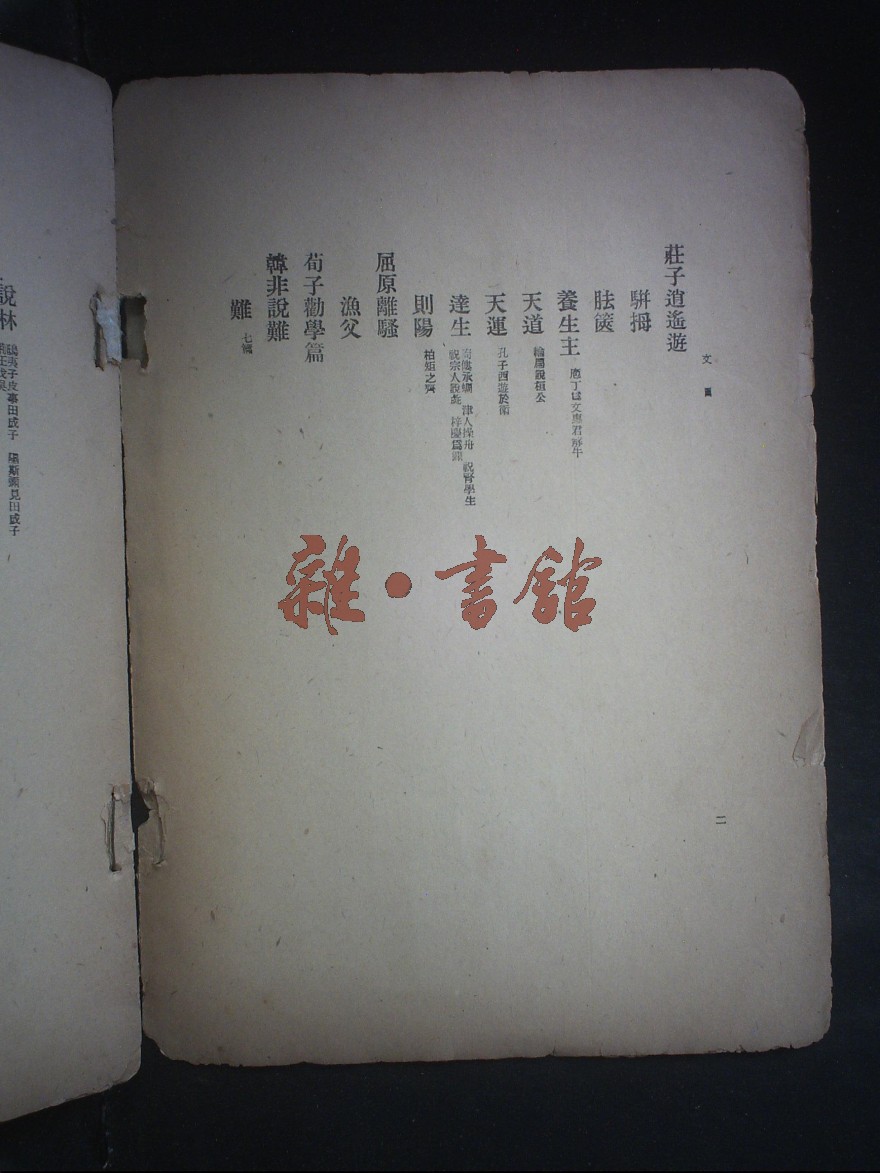 文
二
莊子逍遙遊
駢拇
胠篋
養生主 庖丁為文惠君解牛
天道 輪扁說桓公
天運 孔子西遊於衛
達生 痀僂承蜩 津人操舟 祝腎學生
祝宗人說彘 梓慶為鐻
則陽 柏矩之齊
屈原離騷
漁父
荀子勸學篇
韓非說難
難 七篇
說林 鴟夷子皮事田成子 隰斯彌見田成子
雜·書館